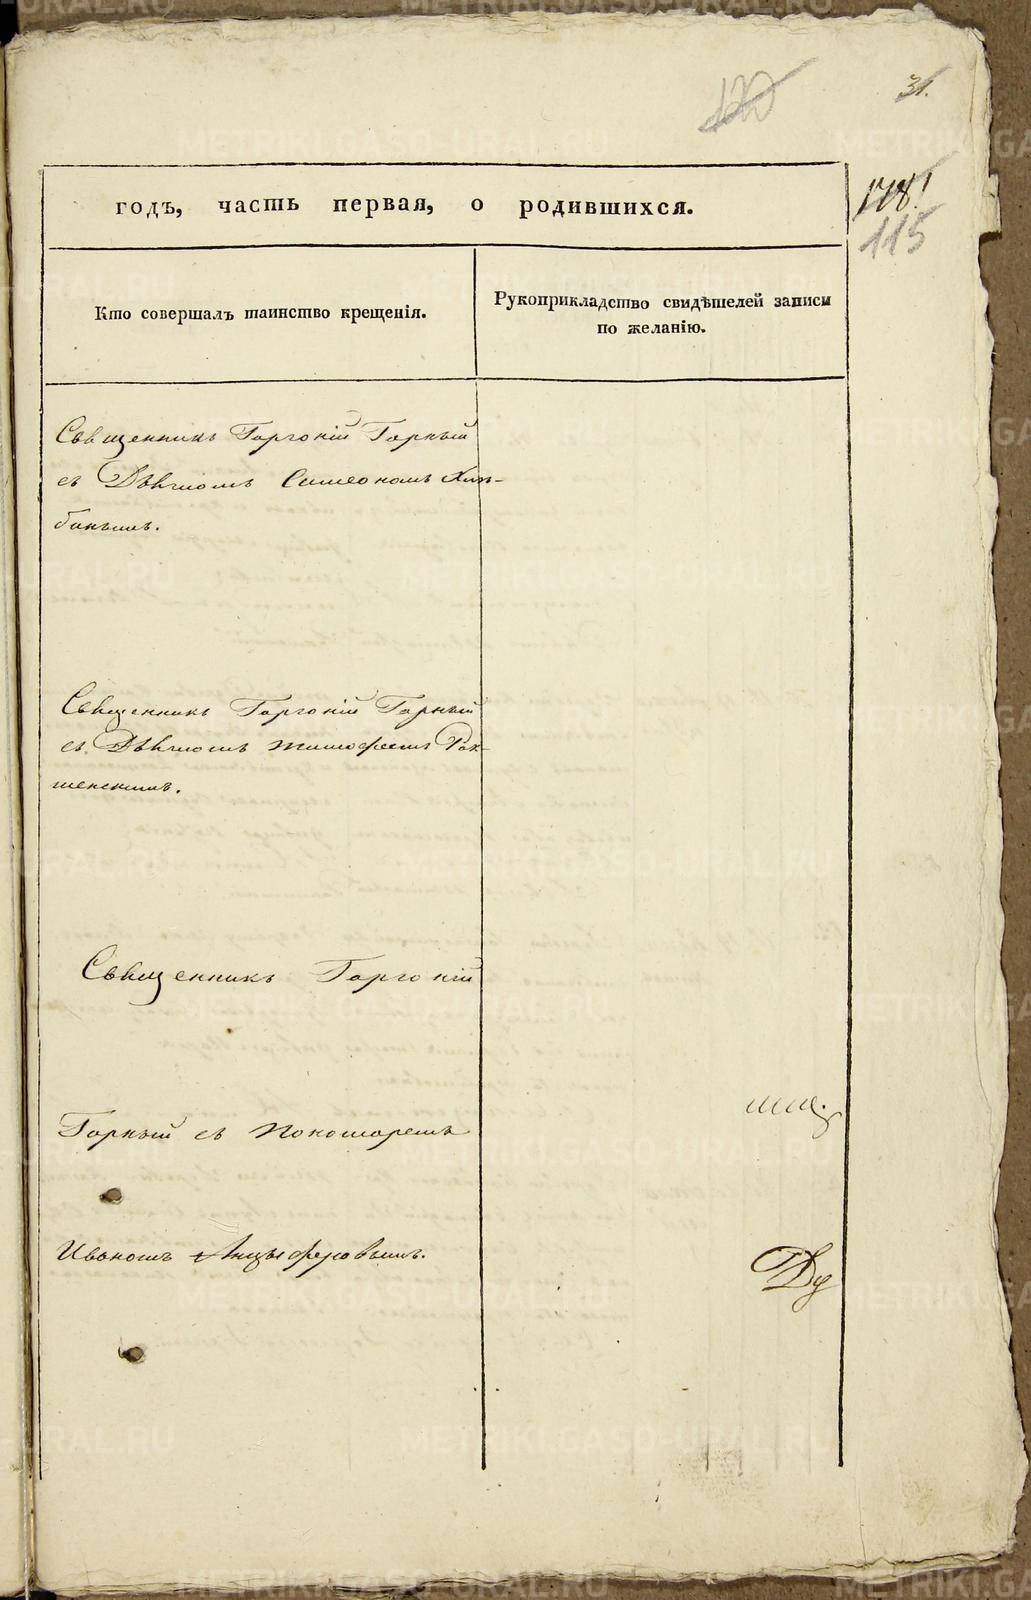 31.
115
годъ, часть первая, о родившихся.
Кто совершалъ таинство крещенія.
Рукоприкладство свидѣтелей записи
по желанію.
Священникъ Горгоній Горный
съ Дьячкомъ Симеономъ Хлы-
бинымъ.
Священникъ Горгоній Горный
съ Дьячкомъ Тимофеемъ
Священникъ Горгоній
Горный съ Пономаремъ
Иваномъ Анцыферовымъ.
METRIKI.GASO-URAL.RU